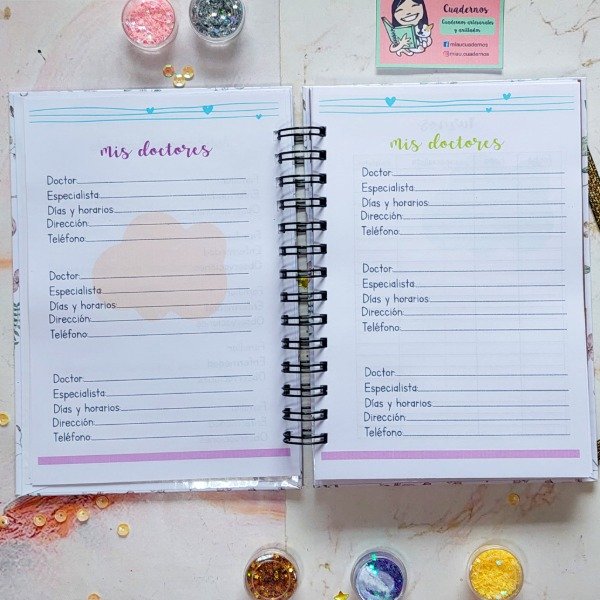 Cuadernos
Cuadernos artesanales
y anillados
miaucuadernos
miau.cuadernos
mis doctores
Doctor:
Especialista:
Días y horarios:
Dirección:
Teléfono:
Doctor:
Especialista:
Días y horarios:
Dirección:
Teléfono:
Doctor:
Especialista:
Días y horarios:
Dirección:
Teléfono:
mis doctores
Doctor:
Especialista:
Días y horarios:
Dirección:
Teléfono:
Doctor:
Especialista:
Días y horarios:
Dirección:
Teléfono:
Doctor:
Especialista:
Días y horarios:
Dirección:
Teléfono: